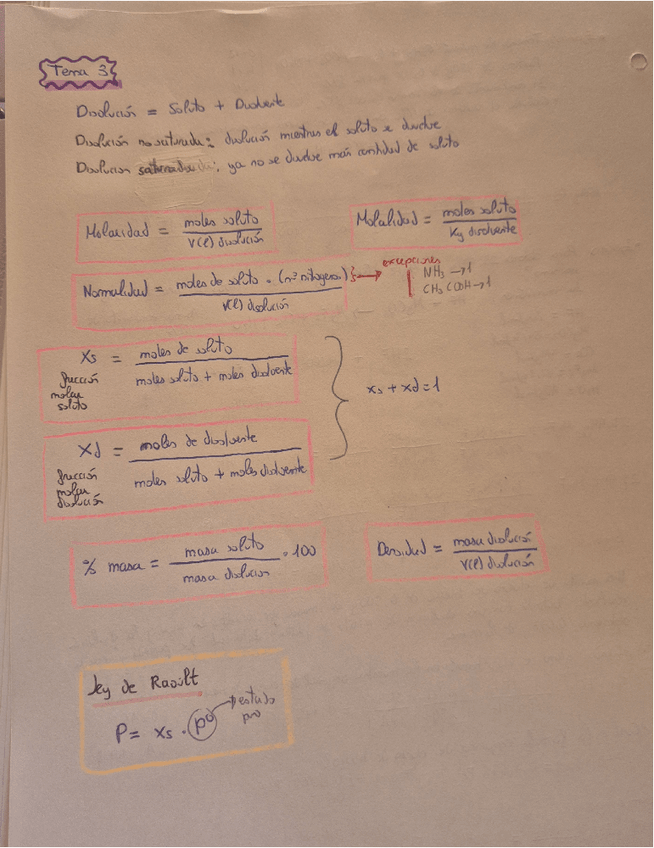 Tema 3
Disolución = Soluto + Disolvente
Disolución no saturada: disolución mientras el soluto se disuelve
Disolución saturada: ya no se disuelve más cantidad de soluto
Molaridad = moles soluto / V(l) disolución
Molalidad = moles soluto / Kg disolvente
Normalidad = moles de soluto · (nº hidrógenos) / V(l) disolución
excepciones
NH3 → 1
CH3COOH → 1
Xs = moles de soluto / moles soluto + moles disolvente
fracción
molar
soluto
xs + xd = 1
Xd = moles de disolvente / moles soluto + moles disolvente
fracción
molar
disolución
% masa = masa soluto / masa disolucion · 100
Densidad = masa disolución / V(l) disolución
Ley de Raoult
P = xs · pº
estado